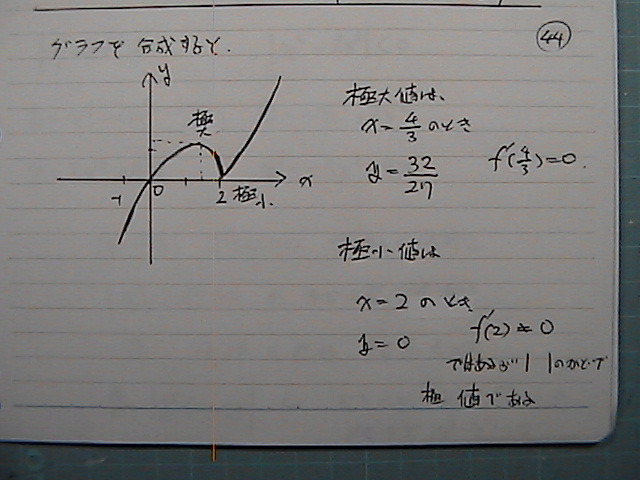 44
グラフを合成すると.
y
極大
x
-1
0
2
極小
極大値は、
x = 4/3 のとき
y = 32/27
f'(4/3) = 0.
極小値は
x = 2 のとき
y = 0
f'(2) ≠ 0
ではあるが | | のかどで
極値である